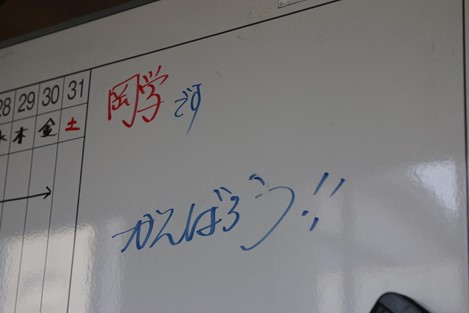 28 29 30 31
水 木 金 土
岡学です
がんばろう!!